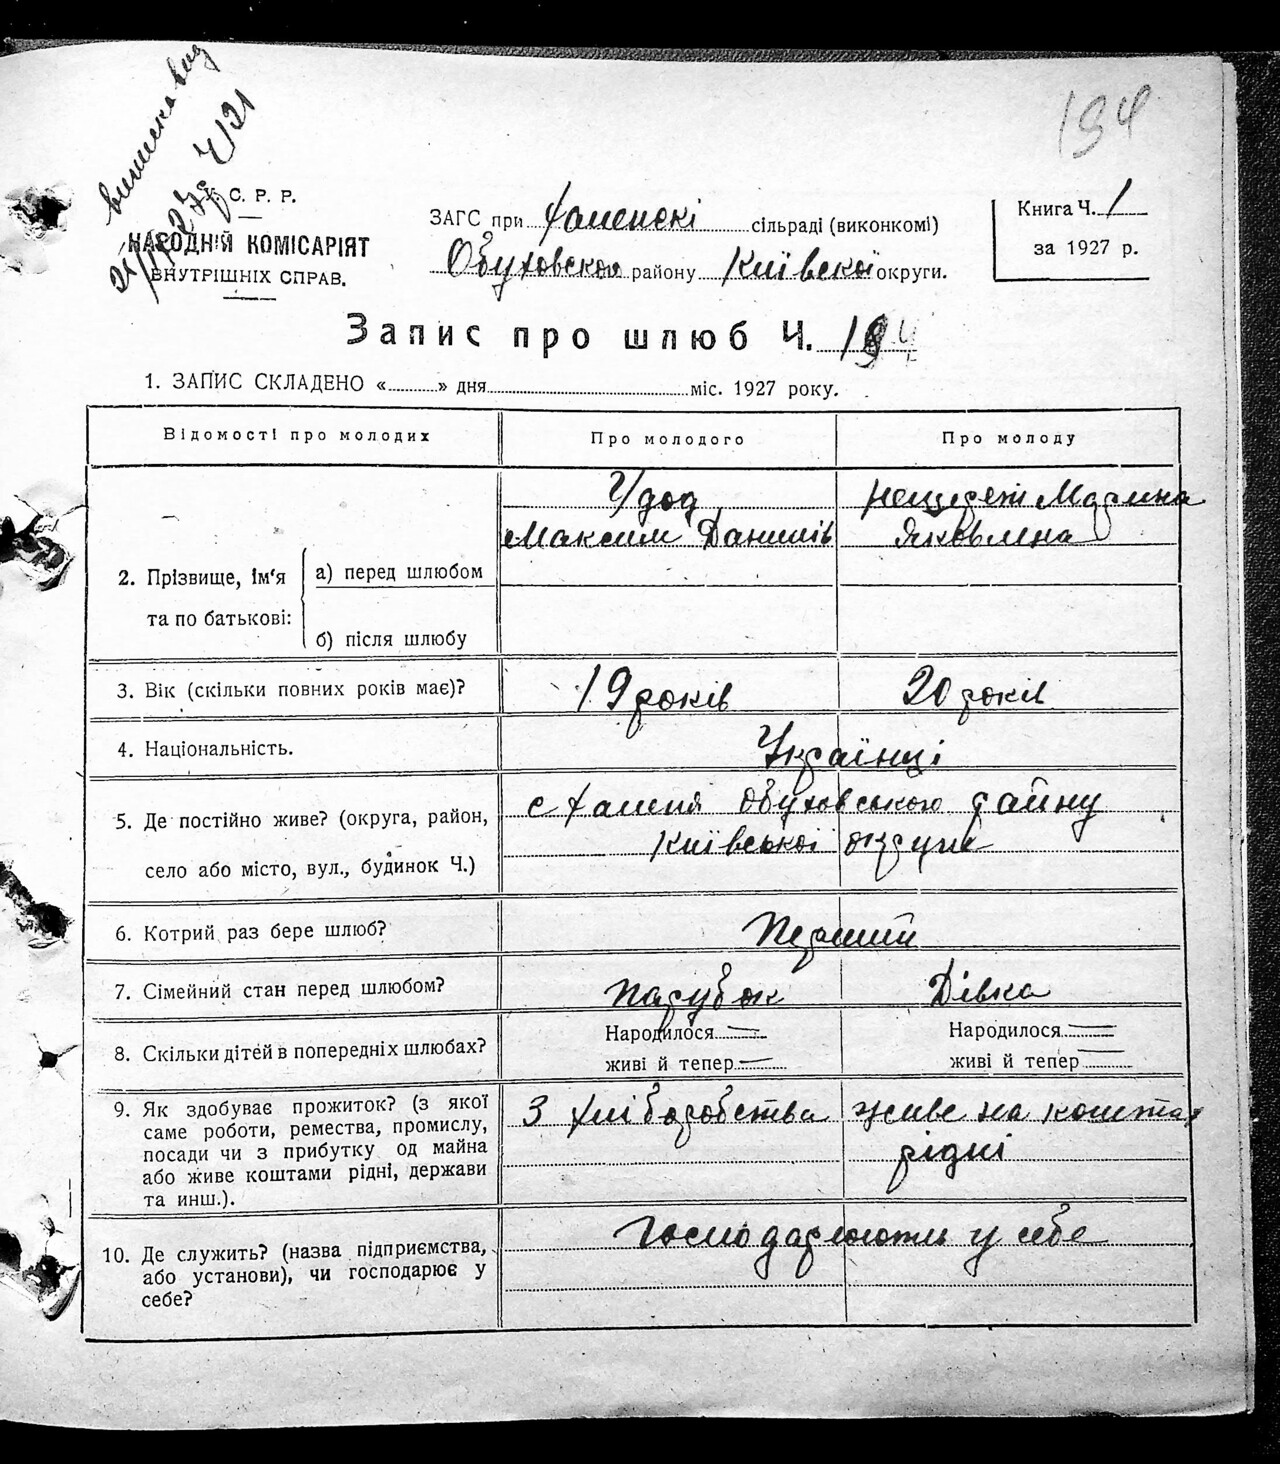 виписка вид
194
У. С. Р. Р.
НАРОДНІЙ КОМІСАРІЯТ
ВНУТРІШНІХ СПРАВ.
ЗАГС при Халепскі сільраді (виконкомі)
Обуховской району Київскої округи.
Книга Ч. 1
за 1927 р.
Запис про шлюб Ч. 194
1. ЗАПИС СКЛАДЕНО « » дня міс. 1927 року.
Відомості про молодих Про молодого Про молоду
2. Прізвище, ім'я та по батькові:
а) перед шлюбом
б) після шлюбу
Удод
Максим Данилів
Нещерет Марина
Яковлена
3. Вік (скільки повних років має)? 19 років 20 років
4. Національність. Українці
5. Де постійно живе? (округа, район,
село або місто, вул., будинок Ч.)
с Халепя Обуховського району
Київської округи
6. Котрий раз бере шлюб? Перший
7. Сімейний стан перед шлюбом? Парубок Дівка
8. Скільки дітей в попередніх шлюбах?
Народилося — Народилося —
живі й тепер — живі й тепер —
9. Як здобуває прожиток? (з якої
саме роботи, ремества, промислу,
посади чи з прибутку од майна
або живе коштами рідні, держави
та инш.).
З хліборобства живе на коштах
рідні
10. Де служить? (назва підприємства,
або установи), чи господарює у
себе?
Господарюють у себе